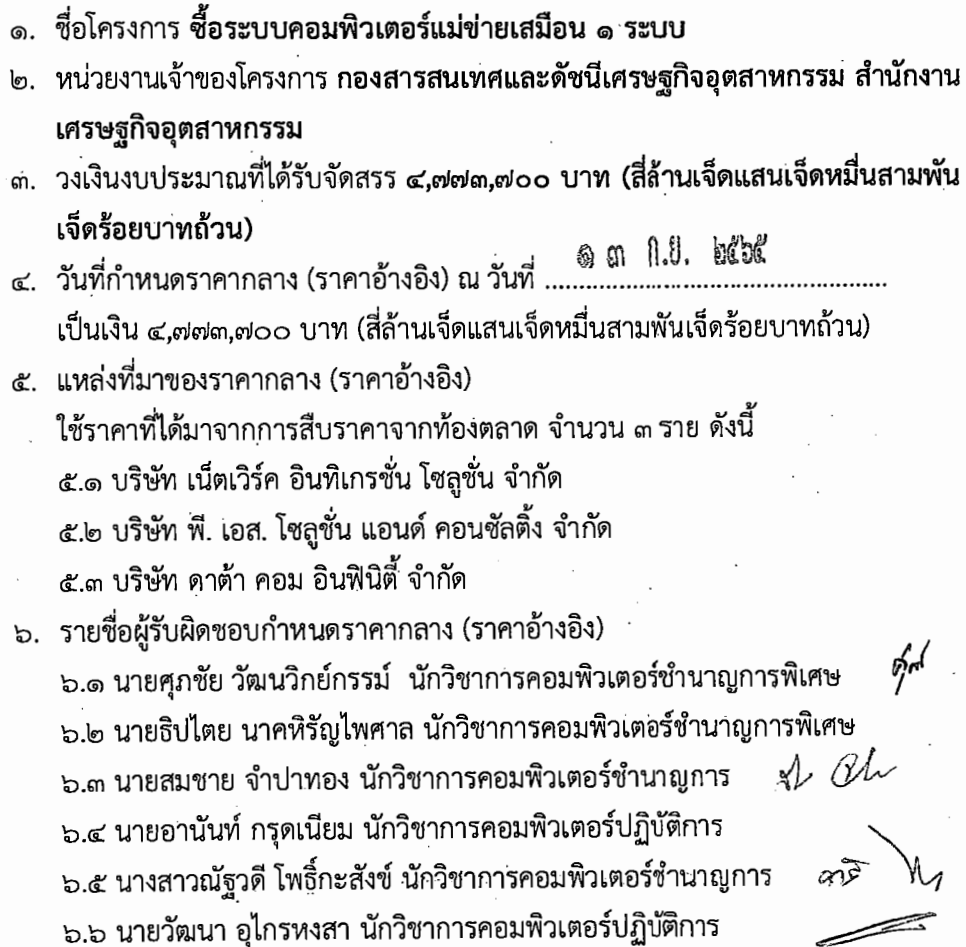 ๑. ชื่อโครงการ ซื้อระบบคอมพิวเตอร์แม่ข่ายเสมือน ๑ ระบบ
๒. หน่วยงานเจ้าของโครงการ กองสารสนเทศและดัชนีเศรษฐกิจอุตสาหกรรม สำนักงาน
เศรษฐกิจอุตสาหกรรม
๓. วงเงินงบประมาณที่ได้รับจัดสรร ๔,๗๗๓,๗๐๐ บาท (สี่ล้านเจ็ดแสนเจ็ดหมื่นสามพัน
เจ็ดร้อยบาทถ้วน)
๔. วันที่กำหนดราคากลาง (ราคาอ้างอิง) ณ วันที่ ๑๓ ก.ย. ๒๕๖๕
เป็นเงิน ๔,๗๗๓,๗๐๐ บาท (สี่ล้านเจ็ดแสนเจ็ดหมื่นสามพันเจ็ดร้อยบาทถ้วน)
๕. แหล่งที่มาของราคากลาง (ราคาอ้างอิง)
ใช้ราคาที่ได้มาจากการสืบราคาจากท้องตลาด จำนวน ๓ ราย ดังนี้
๕.๑ บริษัท เน็ตเวิร์ค อินทิเกรชั่น โซลูชั่น จำกัด
๕.๒ บริษัท พี. เอส. โซลูชั่น แอนด์ คอนซัลติ้ง จำกัด
๕.๓ บริษัท ดาต้า คอม อินฟินิตี้ จำกัด
๖. รายชื่อผู้รับผิดชอบกำหนดราคากลาง (ราคาอ้างอิง)
๖.๑ นายศุภชัย วัฒนวิกย์กรรม์ นักวิชาการคอมพิวเตอร์ชำนาญการพิเศษ
๖.๒ นายธิปไตย นาคหิรัญไพศาล นักวิชาการคอมพิวเตอร์ชำนาญการพิเศษ
๖.๓ นายสมชาย จำปาทอง นักวิชาการคอมพิวเตอร์ชำนาญการ
๖.๔ นายอานันท์ กรุดเนียม นักวิชาการคอมพิวเตอร์ปฏิบัติการ
๖.๕ นางสาวณัฐวดี โพธิ์กะสังข์ นักวิชาการคอมพิวเตอร์ชำนาญการ
๖.๖ นายวัฒนา อุไกรหงสา นักวิชาการคอมพิวเตอร์ปฏิบัติการ